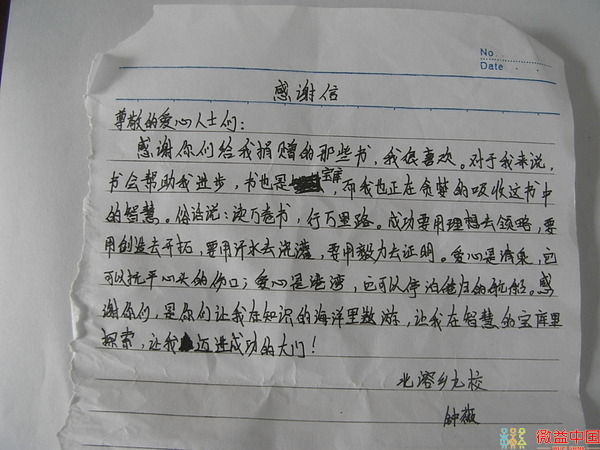 No.
Date
感谢信
尊敬的爱心人士们：
感谢你们给我捐赠的那些书，我很喜欢。对于我来说，
宝库
书会帮助我进步，书也是，而我也正在贪婪的吸收这书中
的智慧。俗话说：读万卷书，行万里路。成功要用理想去领略，要
用创造去开拓，要用汗水去浇灌，要用毅力去证明。爱心是清泉，它
可以抚平心头的伤口；爱心是港湾，它可以停泊归的航船。感
谢你们，是你们让我在知识的海洋里遨游，让我在智慧的宝库里
探索，让我迈进成功的大门！
北溶乡九校
钟薇
微益中国